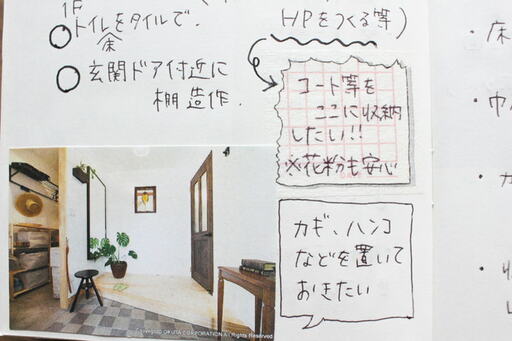 1F
トイレ床をタイルで.
玄関ドア付近に
棚造作.
HPをつくる等)
コート等を
ここに収納
したい!!
※花粉も安心
カギ、ハンコ
などを置いて
おきたい
Copyright© OKUTA CORPORATION All Rights Reserved
・床